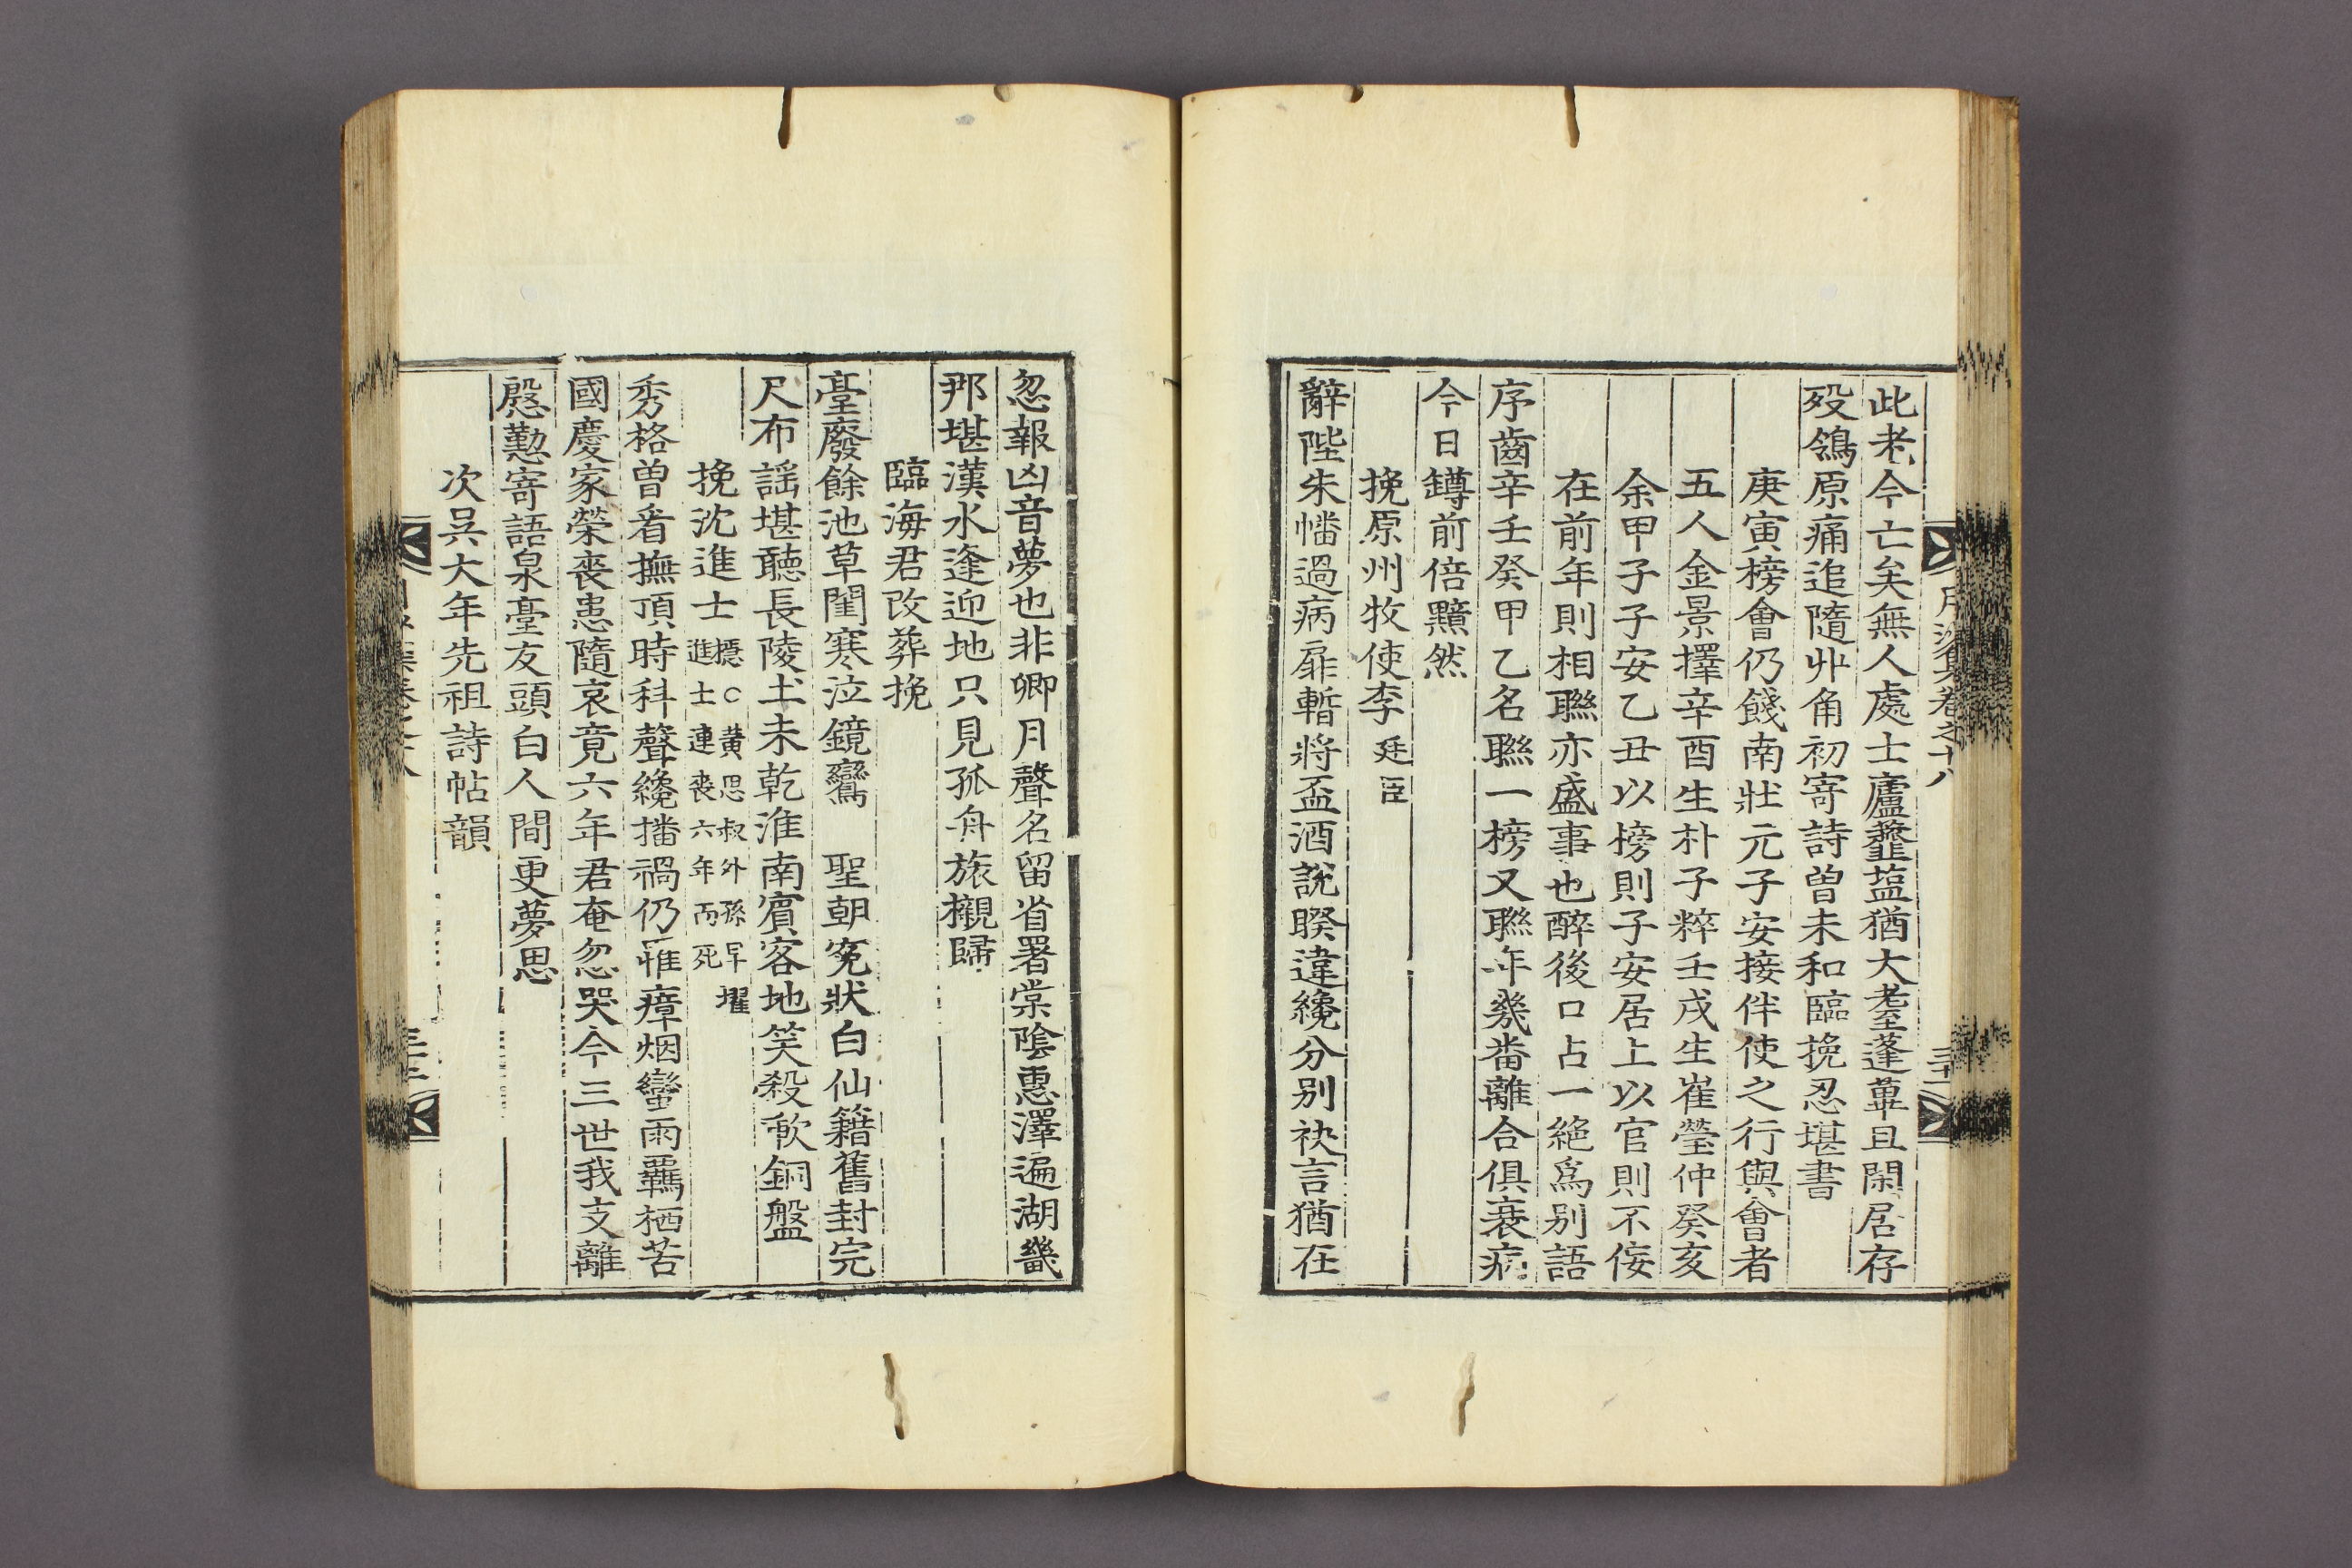 月沙集卷之十八
此老今亡矣無人處士廬虀塩猶大耋蓬蓽且閑居存
歿鴒原痛追隨丱角初寄詩曾未和臨挽忍堪書
庚寅榜會仍餞南壯元子安接伴使之行與會者
五人金景擇辛酉生朴子粹壬戌生崔瑩仲癸亥
余甲子子安乙丑以榜則子安居上以官則不侫
在前年則相聯亦盛事也醉後口占一絶爲別語
序齒辛壬癸甲乙名聯一榜又聯年幾番離合俱衰病
今日罇前倍黯然
挽原州牧使李廷臣
辭陛朱幡過病扉暫將盃酒說睽違纔分別袂言猶在
忽報凶音夢也非卿月聲名留省署棠陰惠澤遍湖畿
那堪漢水逢迎地只見孤舟旅櫬歸
臨海君改葬挽
臺廢餘池草閨寒泣鏡鸞 聖朝寃狀白仙籍舊封完
尺布謠堪聽長陵土未乾淮南賓客地笑殺歃銅盤
挽沈進士 㯖○黃思叔外孫早擢
進士連喪六年而死
秀格曾看撫頂時科聲纔播禍仍罹瘴烟蠻雨羈栖苦
國慶家榮喪患隨哀竟六年君奄忽哭今三世我支離
慇懃寄語泉臺友頭白人間更夢思
次吳大年先祖詩帖韻